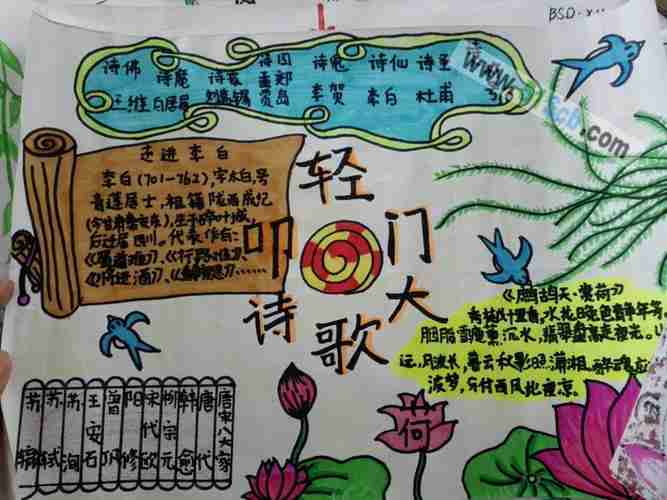 BSD-
诗佛 诗魔 诗豪 诗囚 诗鬼 诗仙 诗圣
王维 白居易 刘禹锡 贾岛 孟郊 李贺 李白 杜甫
走进李白
李白(701-762),字太白,号
青莲居士,祖籍陇西成纪
(今甘肃秦安东),生于碎叶城,
后迁居四川。代表作有:
《蜀道难》、《行路难》、
《将进酒》、……
轻
叩 门
诗 大
歌
《鹧鸪天·赏荷》
水花晚色静年芳。
胭脂雪瘦熏沉水,翡翠盘高走夜光。
远,风波长,暮云秋影照潇湘。醉魂应
凌梦,分付西风此夜凉。
荷
唐宋八大家
唐代
韩愈
柳宗元
宋代欧
阳修
曾巩
王安石
苏洵
苏轼
苏辙